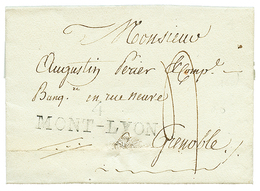 Monsieur
Augustin Périer & Comp.e
Banq.rs en rue neuve
4
MONT-LYON
Grenoble.